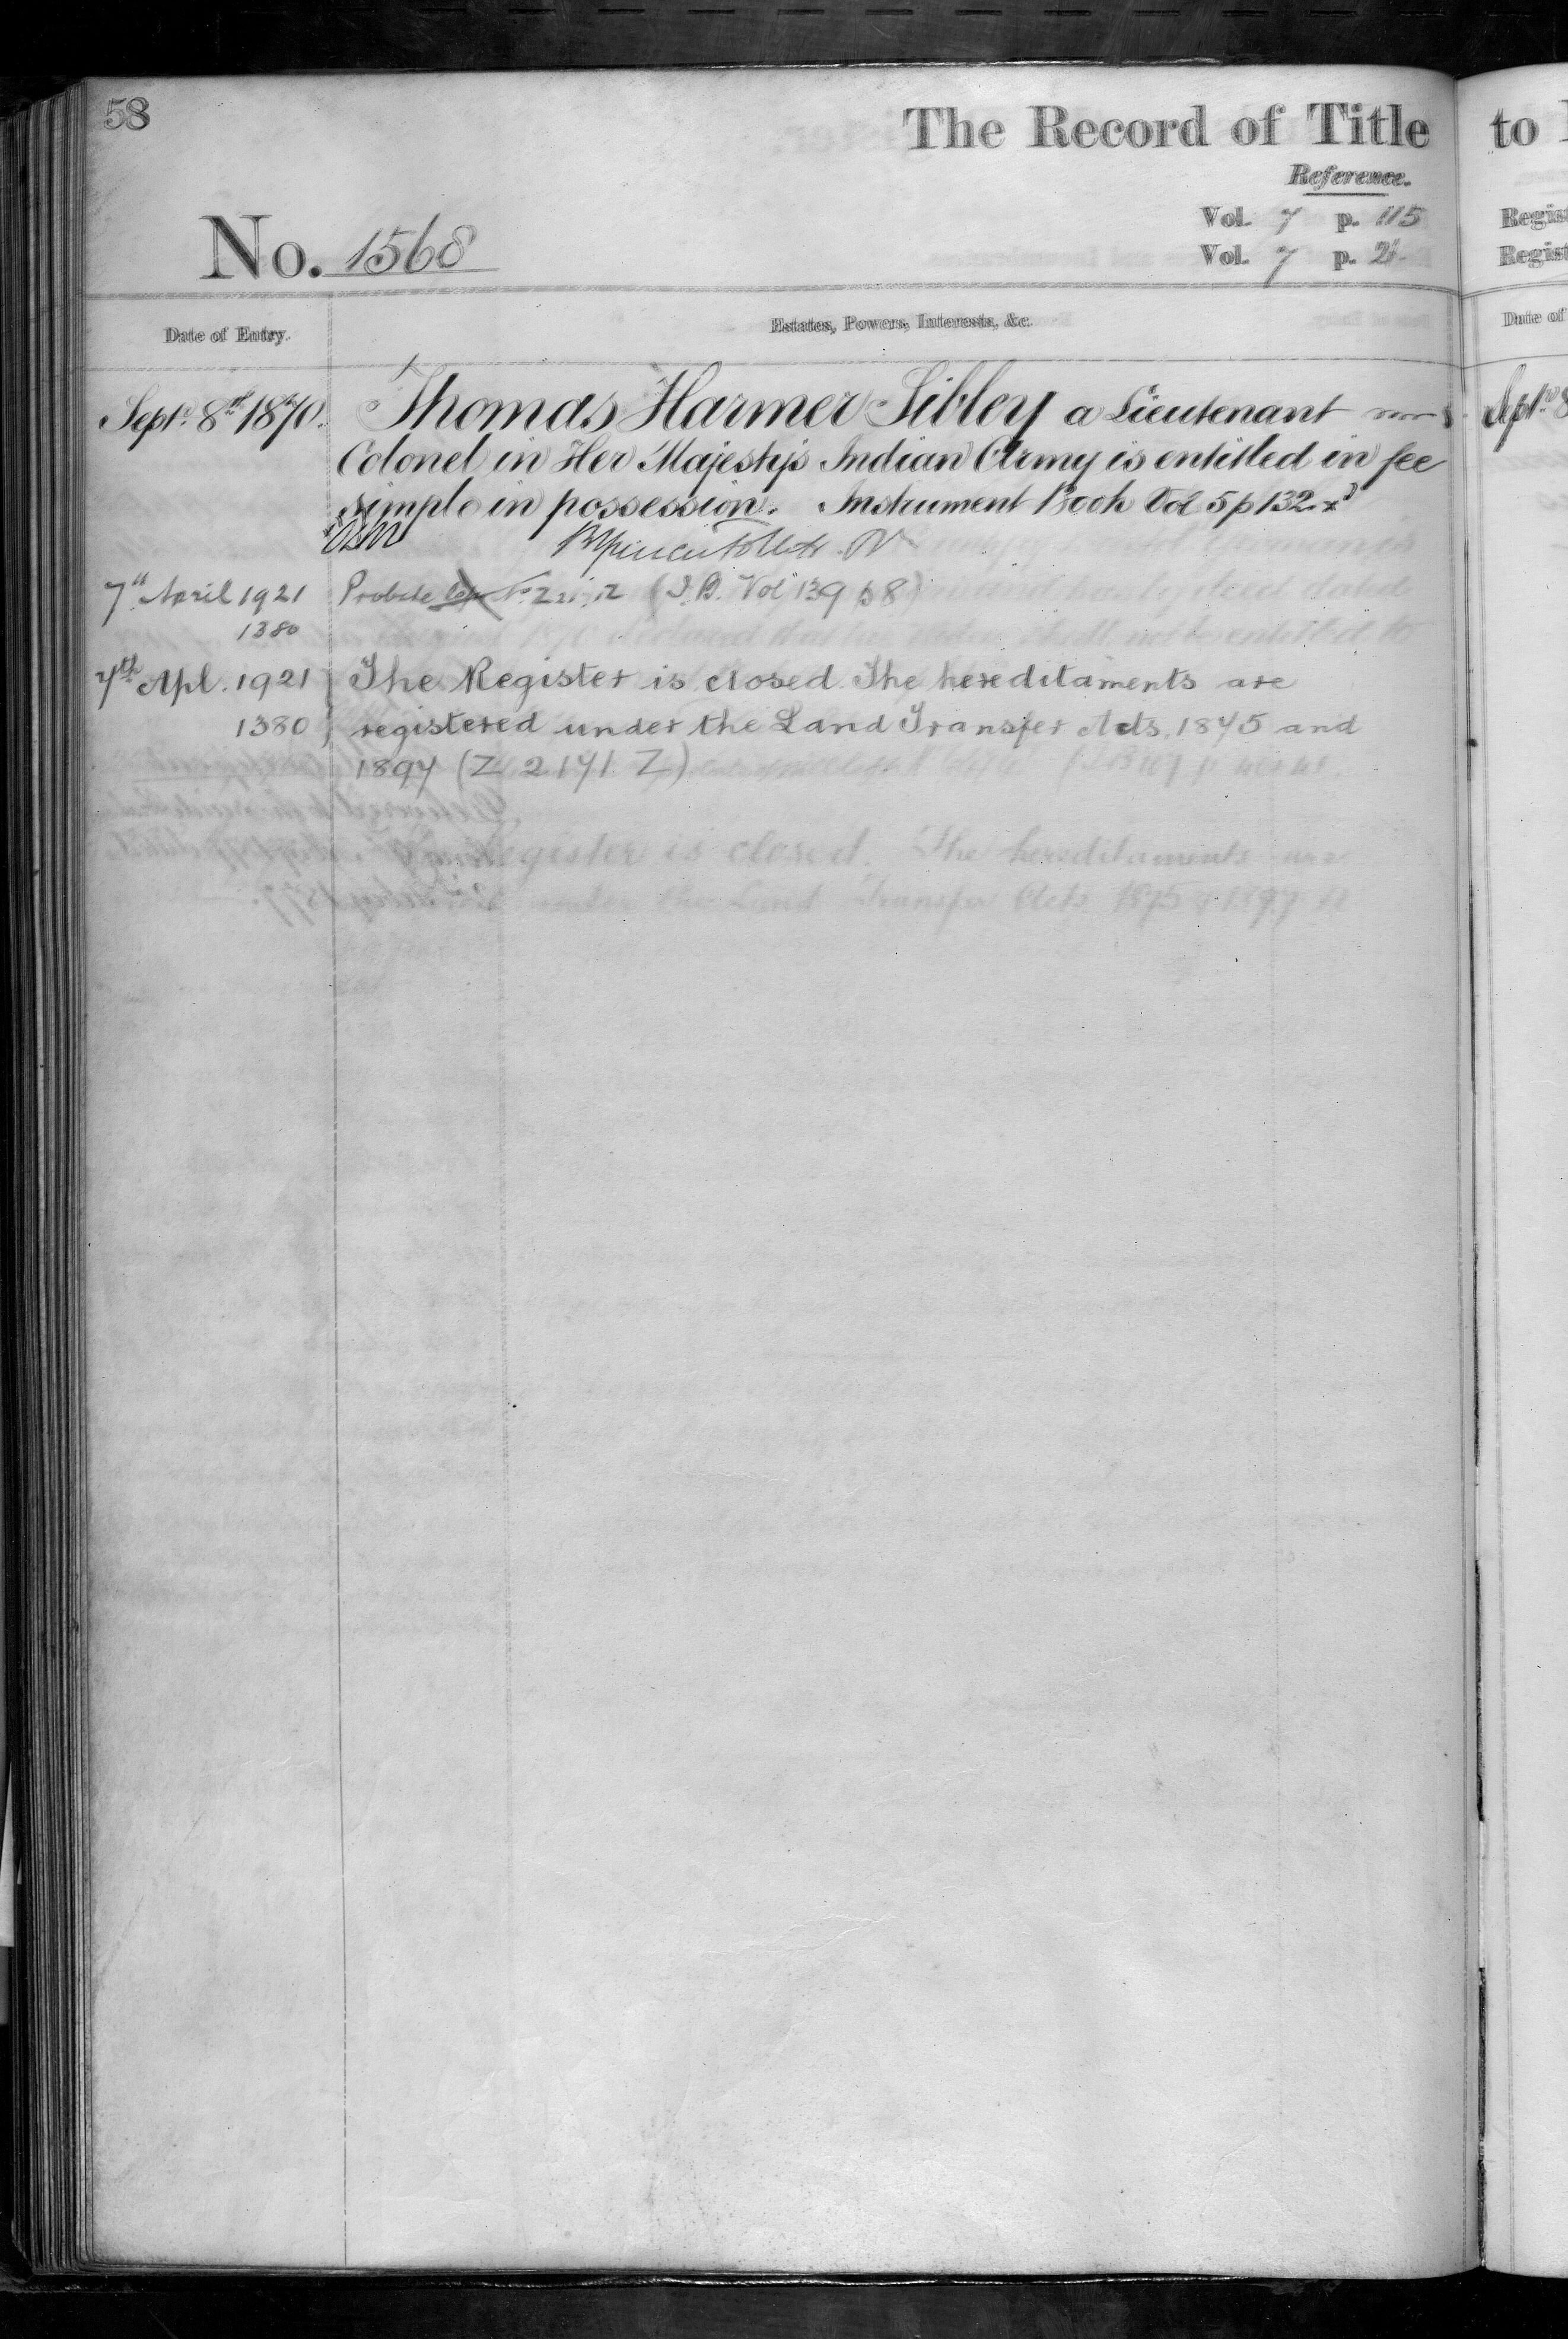 58
The Record of Title
to
Reference.
Vol. 7 p. 115
Vol. 7 p. 21
Regist
Regist
No. 1568
Date of Entry.
Estates, Powers, Interests, &c.
Date of
Septr. 8th 1870. Thomas Harmer Sibley a Lieutenant
Colonel in Her Majesty's Indian Army is entitled in fee
simple in possession. Instrument Book Vol 5 p 132.
Septr 8
7th April 1921 Probate (I.B. Vol 139 p 8)
1380
7th Apl. 1921 The Register is closed. The hereditaments are
1380 registered under the Land Transfer Acts, 1875 and
1897 (Z 2171 Z)